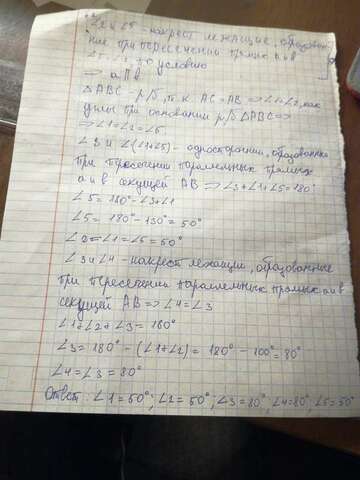 ∠2 и ∠5 - накрест лежащие, образован-
ные при пересечении прямых а и в
∠5 = ∠2, по условию
⇒ a ∥ b
△ABC - р/б, т.к. AC = AB ⇒ ∠1=∠2, как
углы при основании р/б △ABC ⇒
⇒ ∠1 = ∠2 = ∠5.
∠3 и ∠(1+∠5) - односторонии, образованные
при пересечении параллельных прямых
а и в секущей AB ⇒ ∠3+∠1+∠5 = 180°
∠5 = 180° - ∠3+∠1
∠5 = 180° - 130° = 50°
∠2 = ∠1 = ∠5 = 50°
∠3 и ∠4 - накрест лежащии, образованные
при пересечении параллельных прямых а и в
секущей AB ⇒ ∠4 = ∠3
∠1 + ∠2 + ∠3 = 180°
∠3 = 180° - (∠1+∠2) = 180° - 100° = 80°
∠4 = ∠3 = 80°
Ответ: ∠1 = 50°; ∠2 = 50°; ∠3 = 80°; ∠4 = 80°; ∠5 = 50°